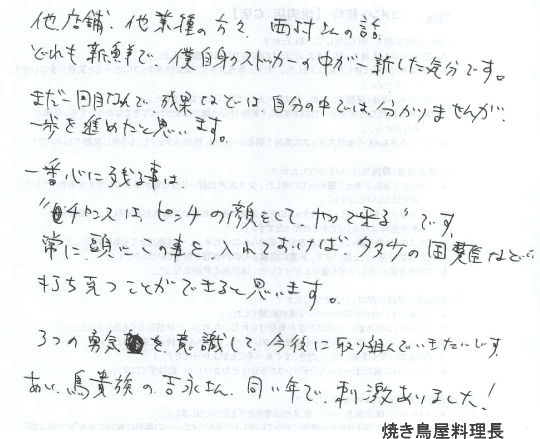 他店舗、他業種の方々、西村さんの話
どれも新鮮で、僕自身のストッカーの中が一新した気分です。
まだ一回目なんで、成果などは自分の中では分かりませんが、
一歩を進めたと思います。
一番心に残る事は、
"チャンスは、ピンチの顔をしてやって来る"です。
常に、頭にこの事を入れておけば 多少の困難などに
打ち克つことができると思います。
3つの勇気を意識して、今後に取り組んでいきたいです。
あと、鳥貴族の吉永さん、同い年で、刺激ありました!
焼き鳥屋料理長